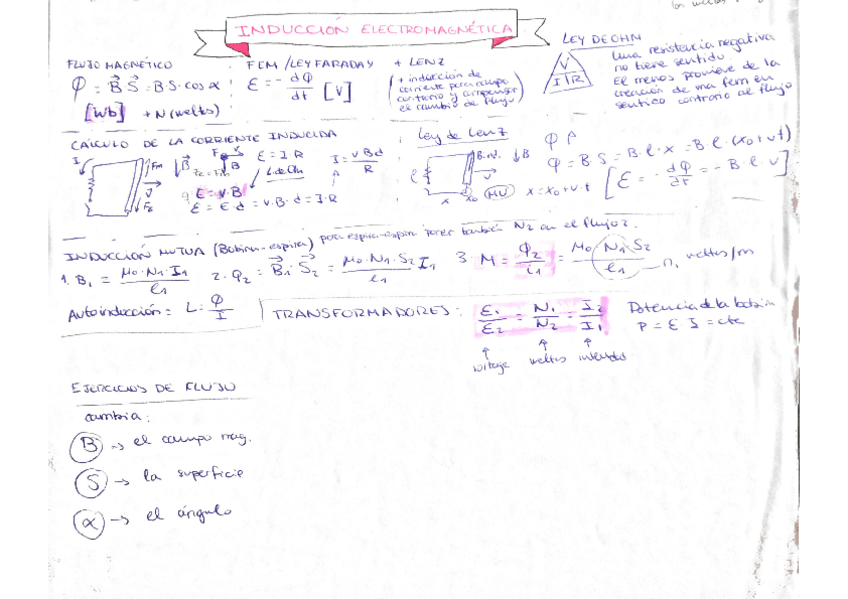 INDUCCIÓN ELECTROMAGNÉTICA
FLUJO MAGNÉTICO
φ = B⃗ S⃗ = B·S·cos α
[Wb] + N (vueltas)
FEM / LEY FARADAY + LENZ
ε = - dφ/dt [V]
(+ inducción de
corriente para campo
contrario y compensar
el cambio de flujo)
LEY DE OHM
V
I R
Una resistencia negativa
no tiene sentido.
El menos proviene de la
creación de una fem en
sentido contrario al flujo
CÁLCULO DE LA CORRIENTE INDUCIDA
I Fm B⃗ v
ε = I·R
I = v·B·d / R
L. de Ohm
E = v·B
ε = E·d = v·B·d = I·R
Ley de Lenz
B ind. ↓B
x x₀ MU x = x₀ + v·t
φ = B·S = B·l·x = B·l·(x₀ + vt)
[ε = - dφ/dt = - B·l·v]
INDUCCIÓN MUTUA (Bobina-espira) para espira-espira tener también N2 en el flujo 2.
1. B₁ = μ₀·N₁·I₁ / l₁ 2. φ₂ = B⃗₁·S⃗₂ = μ₀·N₁·S₂ / l₁ I₁ 3. M = φ₂ / i₁ = μ₀·N₁·S₂ / l₁ → n, vueltas/m
Autoinducción = L = φ/I
TRANSFORMADORES: ε₁/ε₂ = N₁/N₂ = I₂/I₁
voltaje vueltas intensidad
Potencia de la bobina
P = ε·I = cte
EJERCICIOS DE FLUJO
cambia:
B → el campo mag.
S → la superficie
α → el ángulo